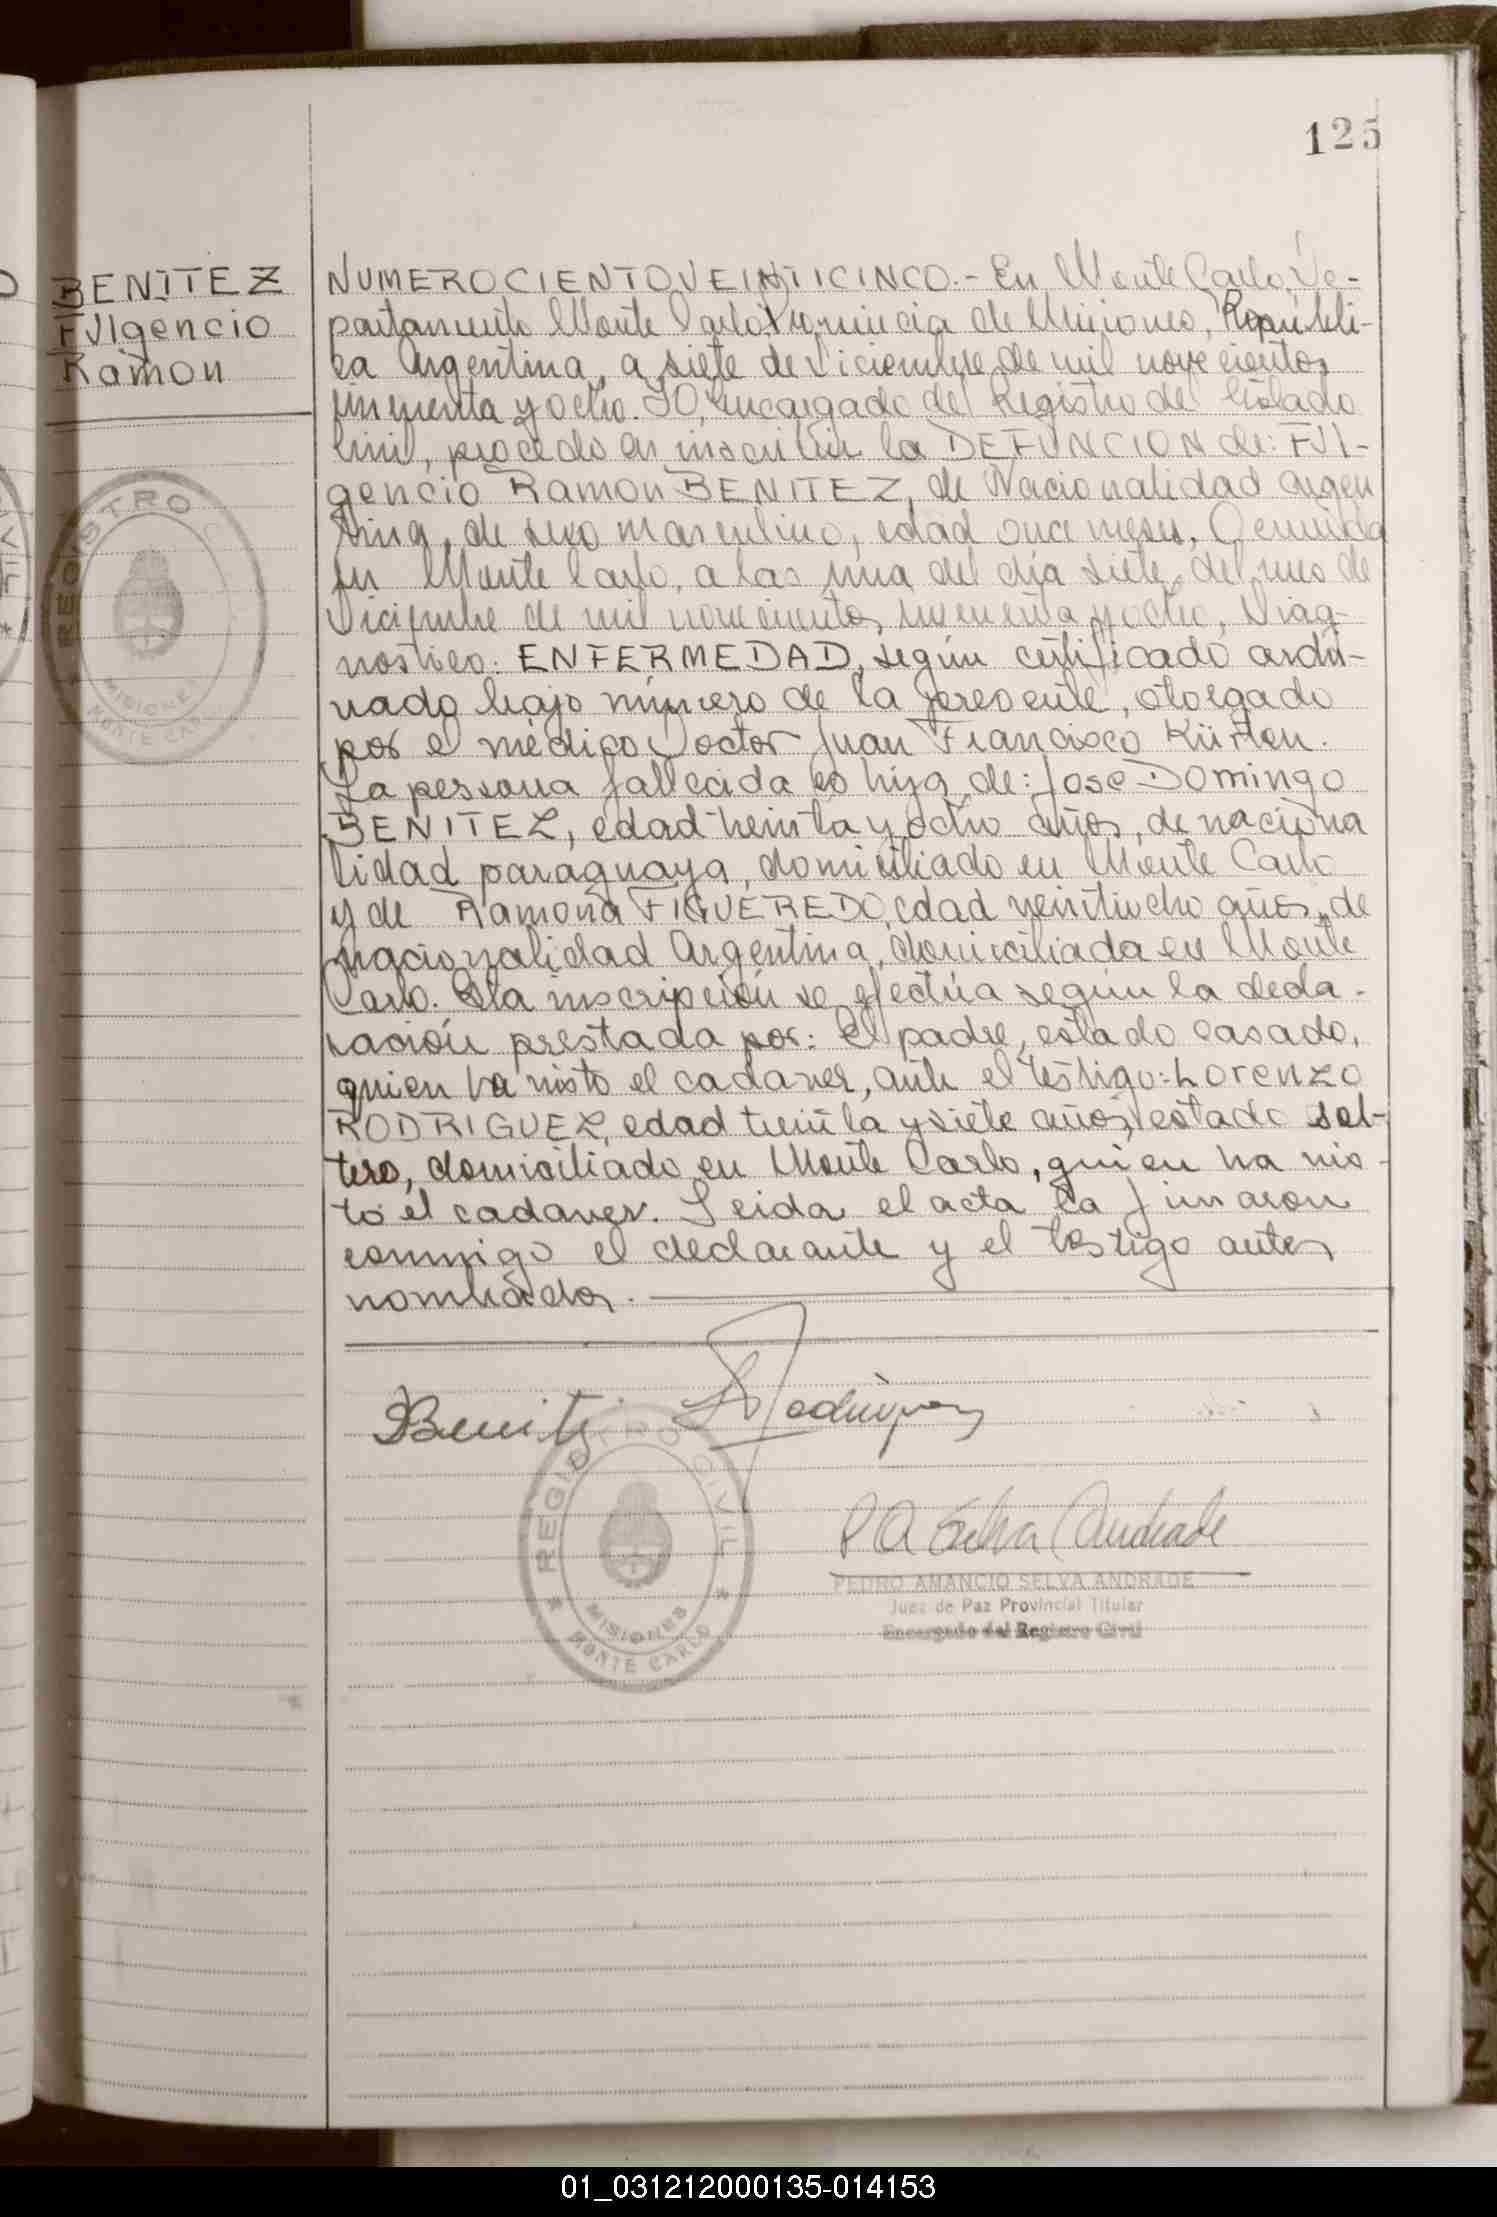 125
BENITEZ
FUlgencio
Ramon
NUMERO CIENTO VEINTICINCO.- En Monte Carlo, De-
partamento Monte Carlo Provincia de Misiones, Republi-
ca Argentina, a siete de Diciembre de mil novecientos
cincuenta y ocho. YO, Encargado del Registro del Estado
Civil, procedo en inscribir la DEFUNCION de: FUl-
gencio Ramon BENITEZ, de Nacionalidad Argen
tina, de sexo masculino, edad once meses. Ocurrida
en Monte Carlo, a las una del día siete, del mes de
Diciembre de mil novecientos cincuenta y ocho, Diag-
nostico: ENFERMEDAD, según certificado archi-
vado bajo número de la presente, otorgado
por el médico Doctor Juan Francisco Kürten.
La persona fallecida es hijo de: Jose DOmingo
BENITEZ, edad treinta y ocho años, de naciona
lidad paraguaya, domiciliado en Monte Carlo
y de Ramona FIGUEREDO, edad veintiocho años, de
nacionalidad Argentina, domiciliada en Monte
Carlo. Esta inscripción se efectúa según la decla-
ración prestada por: El padre, estado casado,
quien ha visto el cadaver, ante el testigo:-Lorenzo
RODRIGUEZ, edad treinta y siete años, estado sol-
tero, domiciliado en Monte Carlo, quien ha vis-
to el cadaver. Leida el acta la firmaron
conmigo el declarante y el testigo antes
nombrados.
Benitez Rodriguez
P A Selva Andrade
PEDRO AMANCIO SELVA ANDRADE
Juez de Paz Provincial Titular
Encargado del Registro Civil
REGISTRO CIVIL
MISIONES
MONTE CARLO
REGISTRO
MISIONES
MONTE CARLO
01_031212000135-014153